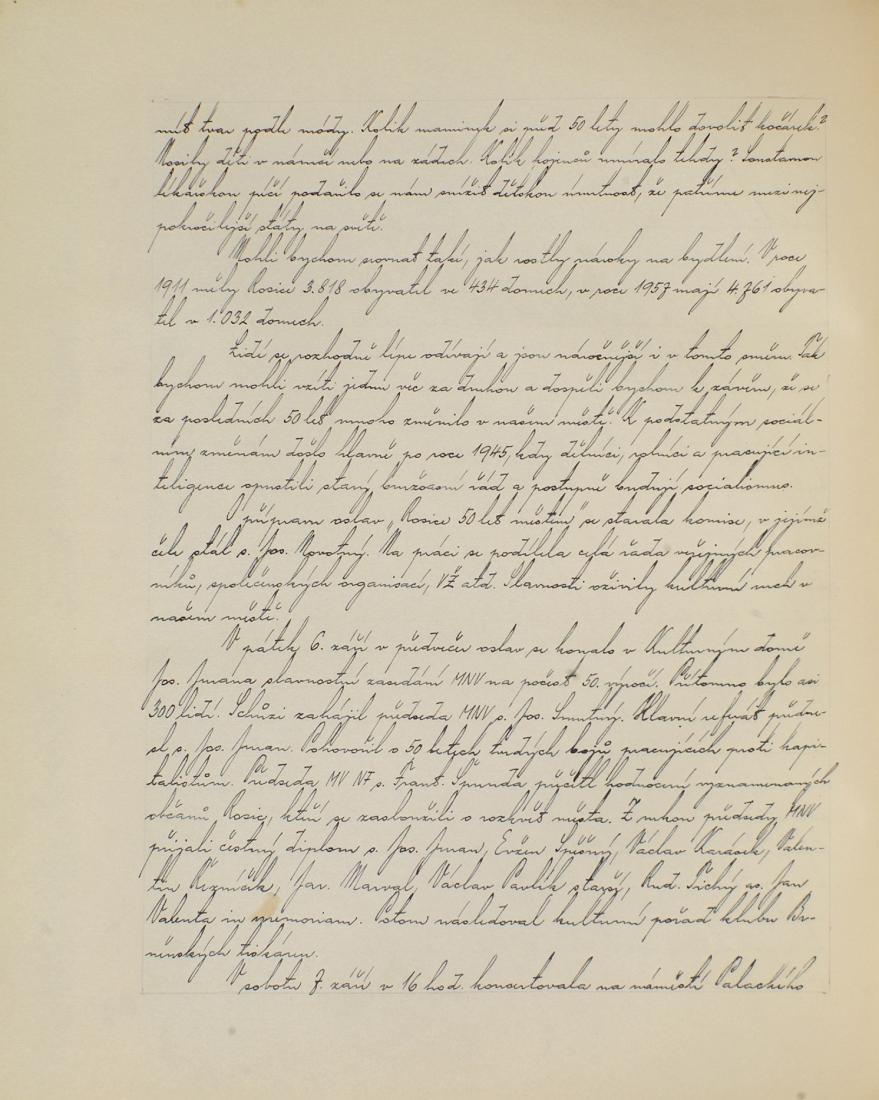 mít tvar podle módy. Kolik maminek si před 50 lety mohlo dovolit kočárek?
Nosily děti v náručí nebo na zádech. Kolik kojenců umíralo tehdy? Soustavnou
lékařskou péčí podařilo se nám snížit dětskou úmrtnost, že patříme mezi nej-
pokročilejší státy na světě.
Mohli bychom srovnat také, jak rostly nároky na bydlení. V roce
1911 měly Rosice 3.818 obyvatel ve 434 domech, v roce 1957 mají 4.761 obyva-
tel v 1.032 domech.
Lidé se rozhodně lépe odívají a jsou náročnější i v tomto směru. Tak
bychom mohli vzíti jednu věc za druhou a dospěli bychom k závěru, že se
za posledních 50 let mnoho změnilo v našem městě. K podstatným sociál-
ním změnám došlo hlavně po roce 1945, kdy dělníci, rolníci a pracující in-
teligence opustili starý buržoasní řád a postupně budují socialismus.
O přípravu oslav „Rosice 50 let městem" se starala komise, v jejímž
čele stál s. Jos. Novotný. Na práci se podílela celá řada veřejných pracov-
níků, společenských organisací, VŽ atd. Slavnosti oživily kulturní ruch v
našem městě.
V pátek 6. září v předvečer oslav se konalo v Kulturním domě
Jos. Jurana slavnostní zasedání MNV na počest 50. výročí. Přítomno bylo asi
300 lidí. Schůzi zahájil předseda MNV s. Jos. Smutný. Hlavní referát předne-
sl s. Jos. Juran. Pohovořil o 50 letech tvrdých bojů pracujících proti kapi-
talistům. Předseda MV NF s. Frant. Špunda přečetl hodnocení vyznamenaných
občanů Rosic, kteří se zasloužili o rozkvět města. Z rukou předsedy MNV
přijali čestný diplom s. Jos. Juran, Evžen Spěšný, Václav Karásek, Valen-
tin Řezníček, Jar. Marval, Václav Pavlík starší, Rud. Tichý a s. Jan
Valenta in memoriam. Potom následoval kulturní pořad klubu Br-
něnských tiskáren.
V sobotu 7. září v 16 hod. koncertovala na náměstí Palackého